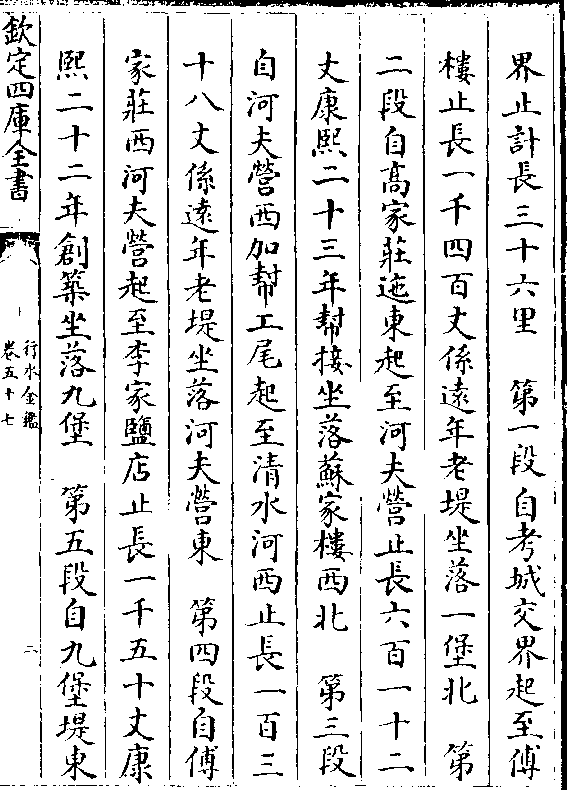 界止計長三十六里　第一段自考城交界起至傅
樓止長一千四百丈係遠年老堤坐落一堡北　第
二段自高家莊迤東起至河夫營止長六百一十二
丈康熙二十三年幫接坐落蘇家樓西北　第三段
自河夫營西加幫工尾起至清水河西止長一百三
十八丈係遠年老堤坐落河夫營東　第四段自傅
家莊西河夫營起至李家鹽店止長一千五十丈康
熙二十二年創築坐落九堡　第五段自九堡堤東
欽定四庫全書
行水金鑑
卷五十七
二